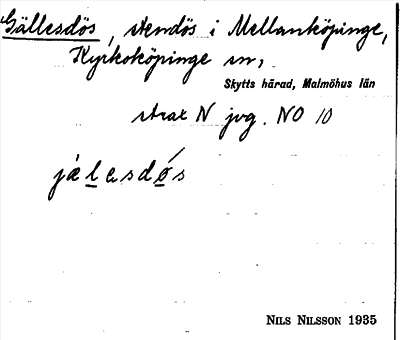 Gällesdös, stendös i Mellanköpinge,
Kyrkoköpinge sn,
Skytts härad, Malmöhus län
strax N jvg. NO 10
jälesdǿs
NILS NILSSON 1935